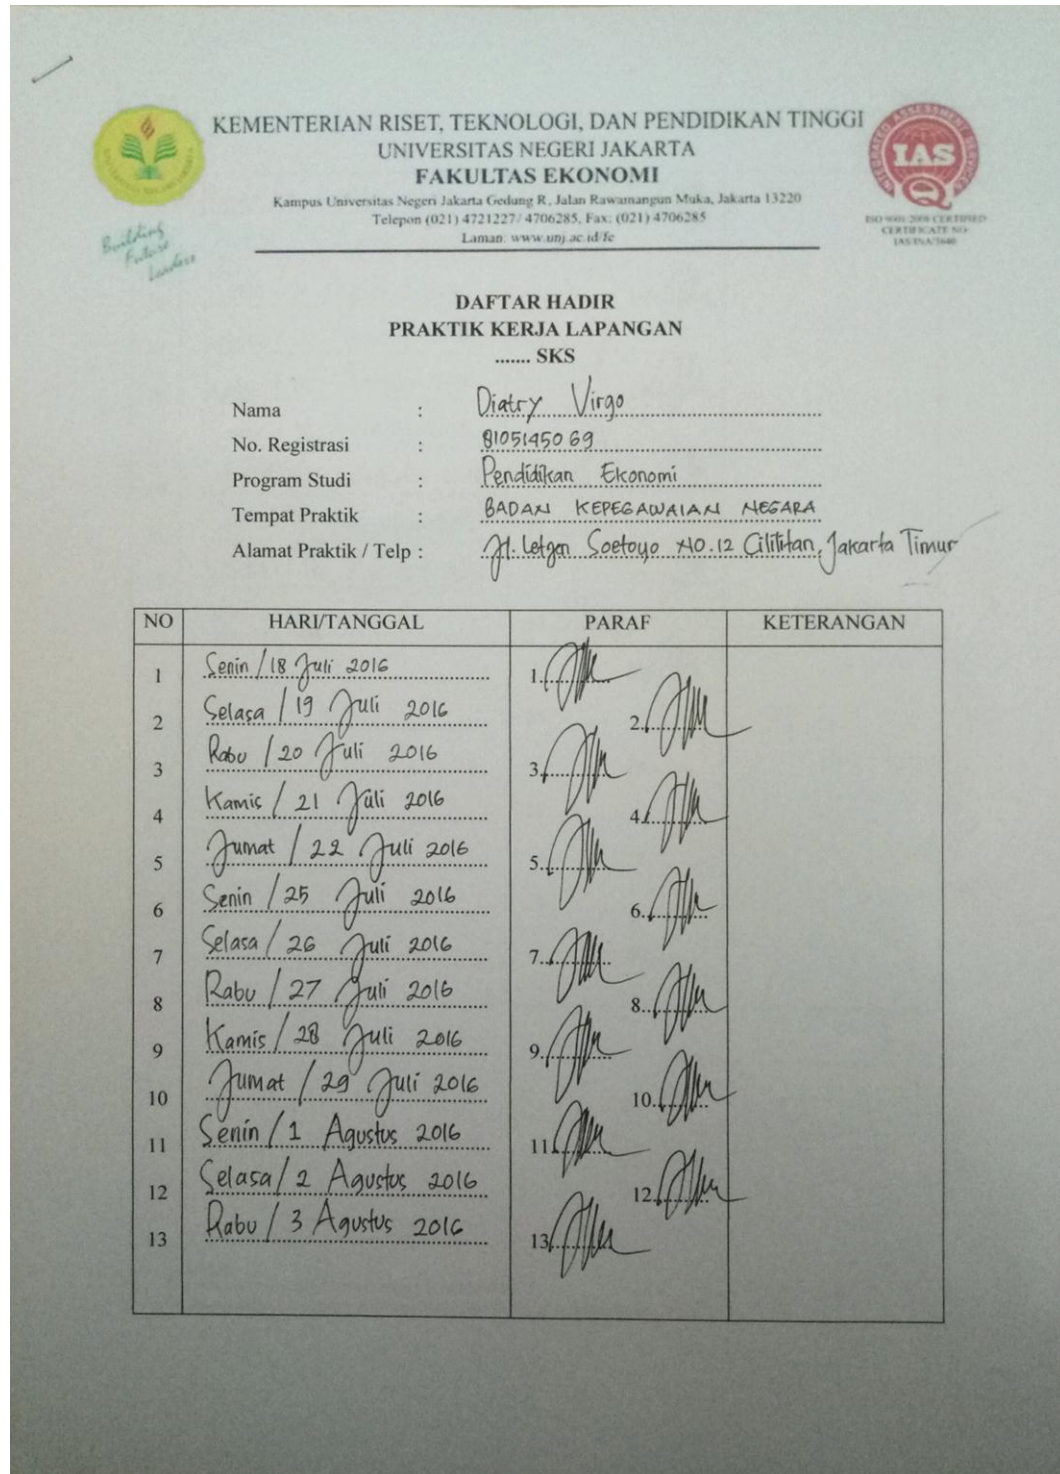 KEMENTERIAN RISET, TEKNOLOGI, DAN PENDIDIKAN TINGGI
UNIVERSITAS NEGERI JAKARTA
FAKULTAS EKONOMI
Kampus Universitas Negeri Jakarta Gedung R, Jalan Rawamangun Muka, Jakarta 13220
Telepon (021) 4721227/ 4706285, Fax: (021) 4706285
Laman: www.unj.ac.id/fe
Building
Future
Leaders
INTEGRATED ASSESSMENT SERVICES
IAS
ISO 9001:2008 CERTIFIED
CERTIFICATE NO:
IAS/INA/5640
DAFTAR HADIR
PRAKTIK KERJA LAPANGAN
....... SKS
Nama : Diatry Virgo
No. Registrasi : 8105145069
Program Studi : Pendidikan Ekonomi
Tempat Praktik : BADAN KEPEGAWAIAN NEGARA
Alamat Praktik / Telp : Jl. Letjen Soetoyo NO.12 Cililitan, Jakarta Timur
NO HARI/TANGGAL PARAF KETERANGAN
1 Senin / 18 Juli 2016 1.
2 Selasa / 19 Juli 2016 2.
3 Rabu / 20 Juli 2016 3.
4 Kamis / 21 Juli 2016 4.
5 Jumat / 22 Juli 2016 5.
6 Senin / 25 Juli 2016 6.
7 Selasa / 26 Juli 2016 7.
8 Rabu / 27 Juli 2016 8.
9 Kamis / 28 Juli 2016 9.
10 Jumat / 29 Juli 2016 10.
11 Senin / 1 Agustus 2016 11.
12 Selasa / 2 Agustus 2016 12.
13 Rabu / 3 Agustus 2016 13.